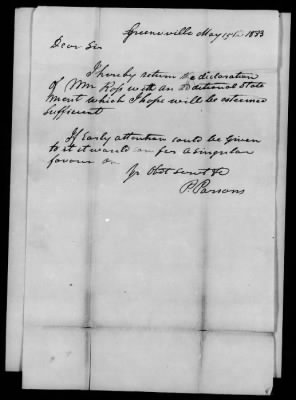 Greenville May 15th 1833
Dear Sir
I hereby return the declaration
of Wm Ross with an additional State
ment which I hope will be esteemed
Sufficient
If Early attention could be given
to it it would confer a singular
favour on
Yr Obt Servt &c
P. Parsons